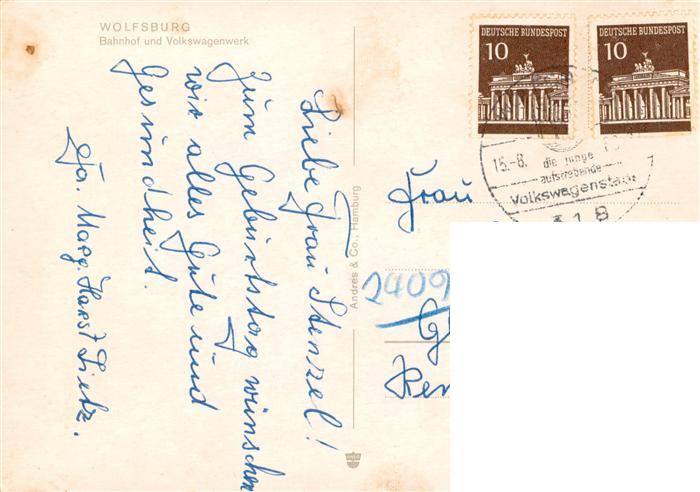 WOLFSBURG
Bahnhof und Volkswagenwerk
Liebe Frau Stenzel!
Zum Geburtstag wünschen
wir alles Gute und
Gesundheit.
Marg. Horst Lietz.
Andres & Co., Hamburg
DEUTSCHE BUNDESPOST
10
DEUTSCHE BUNDESPOST
10
15.-8.
die junge
aufstrebende
Volkswagenstadt
318
Frau
2409